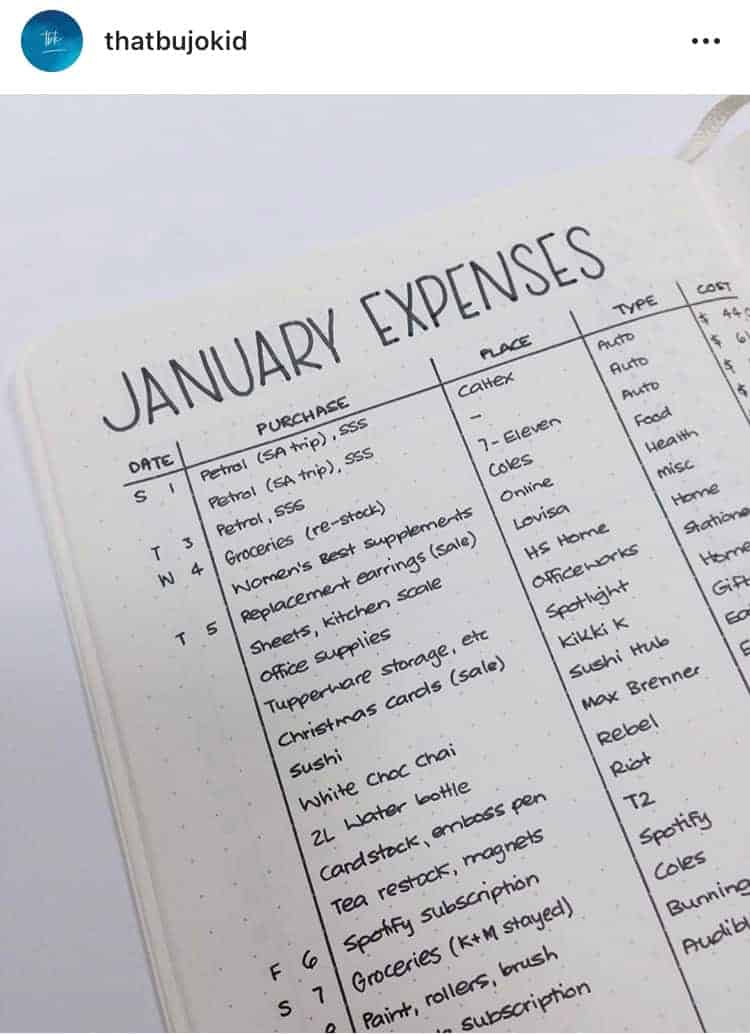 thatbujokid
JANUARY EXPENSES
DATE PURCHASE PLACE TYPE COST
S 1 Petrol (SA trip), SSS Caltex Auto $ 44
Petrol (SA trip), SSS - Auto $ 6
T 3 Petrol, SSS 7-Eleven Auto $
W 4 Groceries (re-stock) Coles Food $
Women's Best supplements Online Health
T 5 Replacement earrings (sale) Lovisa misc
Sheets, kitchen scale HS Home Home
Office supplies Officeworks Statione
Tupperware storage, etc Spotlight Home
Christmas cards (sale) Kikki K Gift
Sushi Sushi Hub
White choc chai Max Brenner
2L water bottle Rebel
Cardstock, emboss pen Riot
Tea restock, magnets T2
F 6 Spotify subscription Spotify
S 7 Groceries (K+M stayed) Coles
Paint, rollers, brush Bunning
subscription Audibl